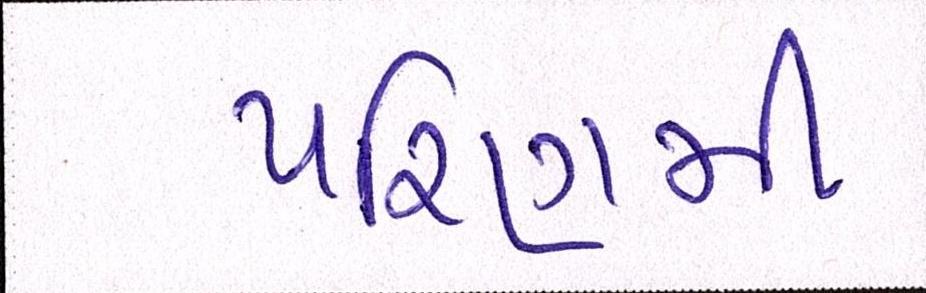 પરિણમી